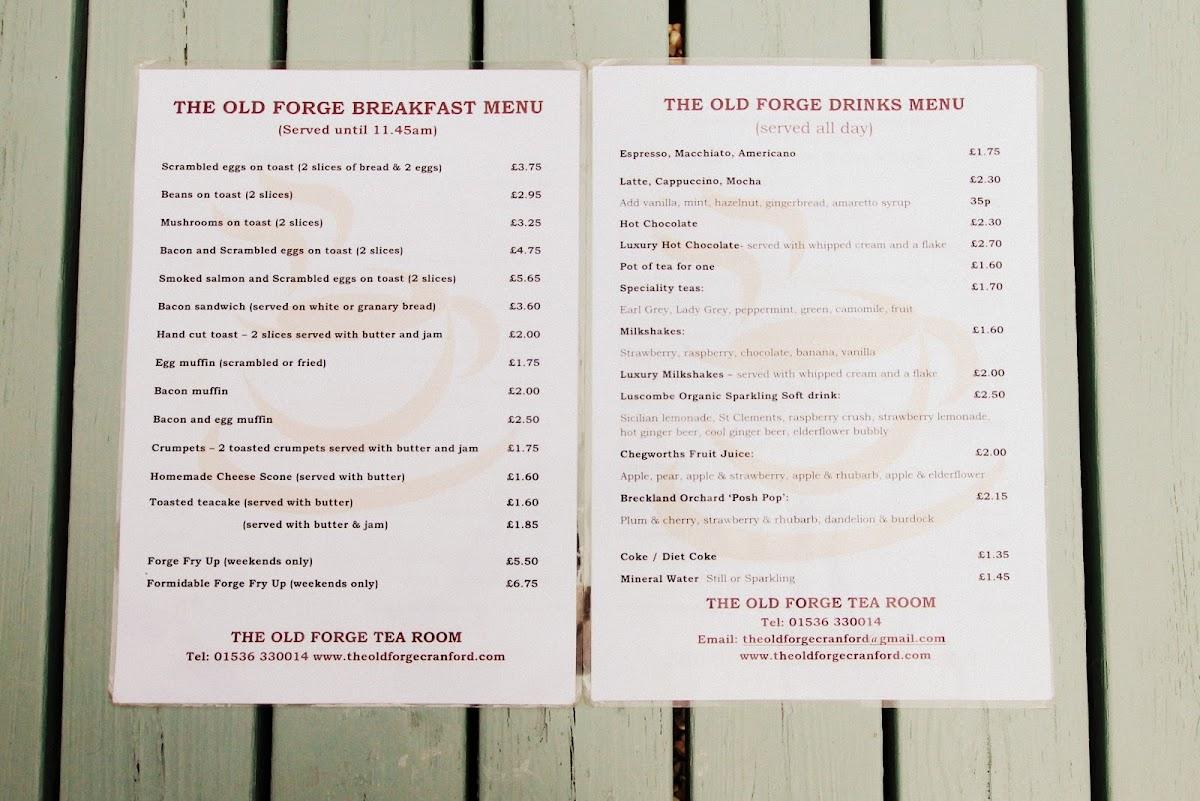 THE OLD FORGE BREAKFAST MENU
(Served until 11.45am)
Scrambled eggs on toast (2 slices of bread & 2 eggs) £3.75
Beans on toast (2 slices) £2.95
Mushrooms on toast (2 slices) £3.25
Bacon and Scrambled eggs on toast (2 slices) £4.75
Smoked salmon and Scrambled eggs on toast (2 slices) £5.65
Bacon sandwich (served on white or granary bread) £3.60
Hand cut toast – 2 slices served with butter and jam £2.00
Egg muffin (scrambled or fried) £1.75
Bacon muffin £2.00
Bacon and egg muffin £2.50
Crumpets – 2 toasted crumpets served with butter and jam £1.75
Homemade Cheese Scone (served with butter) £1.60
Toasted teacake (served with butter) £1.60
(served with butter & jam) £1.85
Forge Fry Up (weekends only) £5.50
Formidable Forge Fry Up (weekends only) £6.75
THE OLD FORGE TEA ROOM
Tel: 01536 330014 www.theoldforgecranford.com
THE OLD FORGE DRINKS MENU
(served all day)
Espresso, Macchiato, Americano £1.75
Latte, Cappuccino, Mocha £2.30
Add vanilla, mint, hazelnut, gingerbread, amaretto syrup 35p
Hot Chocolate £2.30
Luxury Hot Chocolate- served with whipped cream and a flake £2.70
Pot of tea for one £1.60
Speciality teas: £1.70
Earl Grey, Lady Grey, peppermint, green, camomile, fruit
Milkshakes: £1.60
Strawberry, raspberry, chocolate, banana, vanilla
Luxury Milkshakes – served with whipped cream and a flake £2.00
Luscombe Organic Sparkling Soft drink: £2.50
Sicilian lemonade, St Clements, raspberry crush, strawberry lemonade,
hot ginger beer, cool ginger beer, elderflower bubbly
Chegworths Fruit Juice: £2.00
Apple, pear, apple & strawberry, apple & rhubarb, apple & elderflower
Breckland Orchard 'Posh Pop': £2.15
Plum & cherry, strawberry & rhubarb, dandelion & burdock
Coke / Diet Coke £1.35
Mineral Water Still or Sparkling £1.45
THE OLD FORGE TEA ROOM
Tel: 01536 330014
Email: theoldforgecranford@gmail.com
www.theoldforgecranford.com